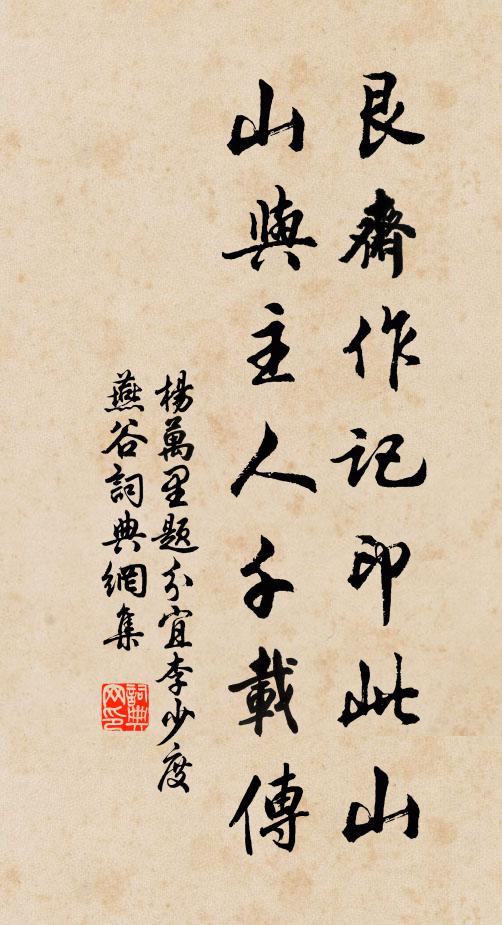 艮齋作記印此山
山與主人千載傳
楊萬里題分宜李少度
燕谷詞典網集
詞典
网印